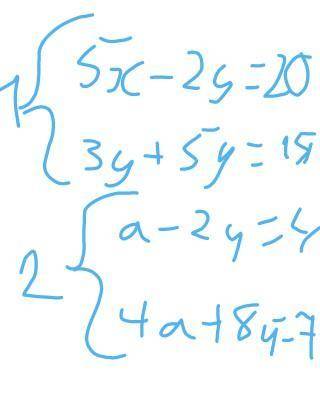 1 { 5x-2y=20
3y+5y=15
2 { a-2y=4
4a+8y=7